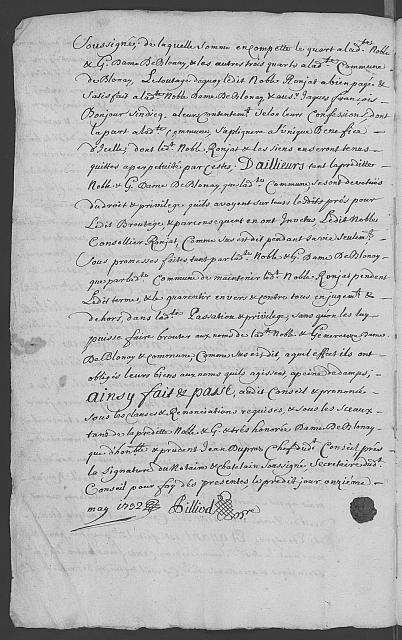 Soussigné, de laquelle somme en compette le quart a lad.te Noble
& G. Dame De Blonay, & les autres trois quarts a lad.te Commune
de Blonay, Le toutage dequoy ledit Noble Ronjat a bien payé &
satisfait a lad.te Noble Dame De Blonay & au S.r Jaques François
Bonjour Sindicq, a leur contentem.t selon leurs Confessions, dont
la part a lad.te commune, s'apliquera a l'unique Benefice
d'Icelle, dont led.t Noble Ronjat & les siens en seront tenus
quittes a perpetuité par cestes. D'ailleurs tant la preditte
Noble & G. Dame De Blonay que lad.te Commune se sont devetües
du droit & privilege qu'ils avoyent sur tous lesdits prés pour
Ledit Broutage & par consequent en ont Investu, Ledit Noble
Consellier Ronjat, Comme sus est dit pendant sa vie seulem.t
Sous promesses faites tant par lad.te Noble & G. Dame De Blonay
que par lad.te Commune de maintenir led.t Noble Ronjat pendent
Ledit terme, & le guarentir envers & contre tous en jugem.t &
dehors, dans lad.te Passation & privilege, sans que on luy
puisse faire brouter aux noms de lad.te Noble & Genereuse Dame
De Blonay & commune, Comme sus est dit, a quel effect ils ont
obligés leurs biens aux noms qu'ils agissent a peine de damps;
ainsy fait & passé, audit Conseil & prononcé
sous les clauses & Renonciations requises, & sous les Sceaux
tant de la preditte Noble & G. & très honorée Dame De Blonay
que d'honble & prudent Jean Dupraz Chef dud.t Conseil près
la signature du Notaire & Chatelain soussigné Secretaire dud.t
Conseil pour foy des presentes le predit jour onzième
may 1732 Pilliod